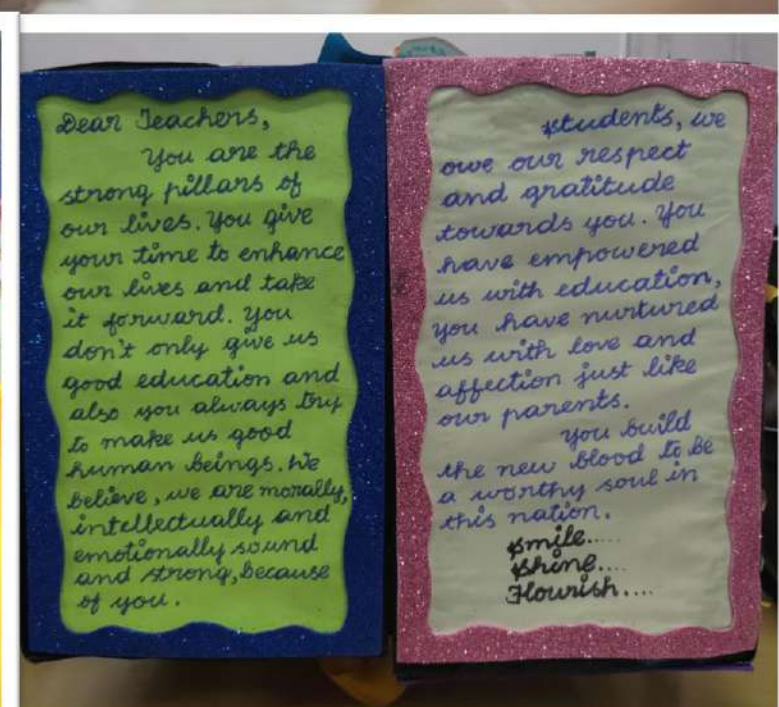 Dear Teachers,
You are the
strong pillars of
our lives. You give
your time to enhance
our lives and take
it forward. You
don't only give us
good education and
also you always try
to make us good
human beings. We
believe, we are morally,
intellectually and
emotionally sound
and strong, because
of you.
students, we
owe our respect
and gratitude
towards you. You
have empowered
us with education,
you have nurtured
us with love and
affection just like
our parents.
You build
the new blood to be
a worthy soul in
this nation.
Smile.....
Shine....
Flourish....